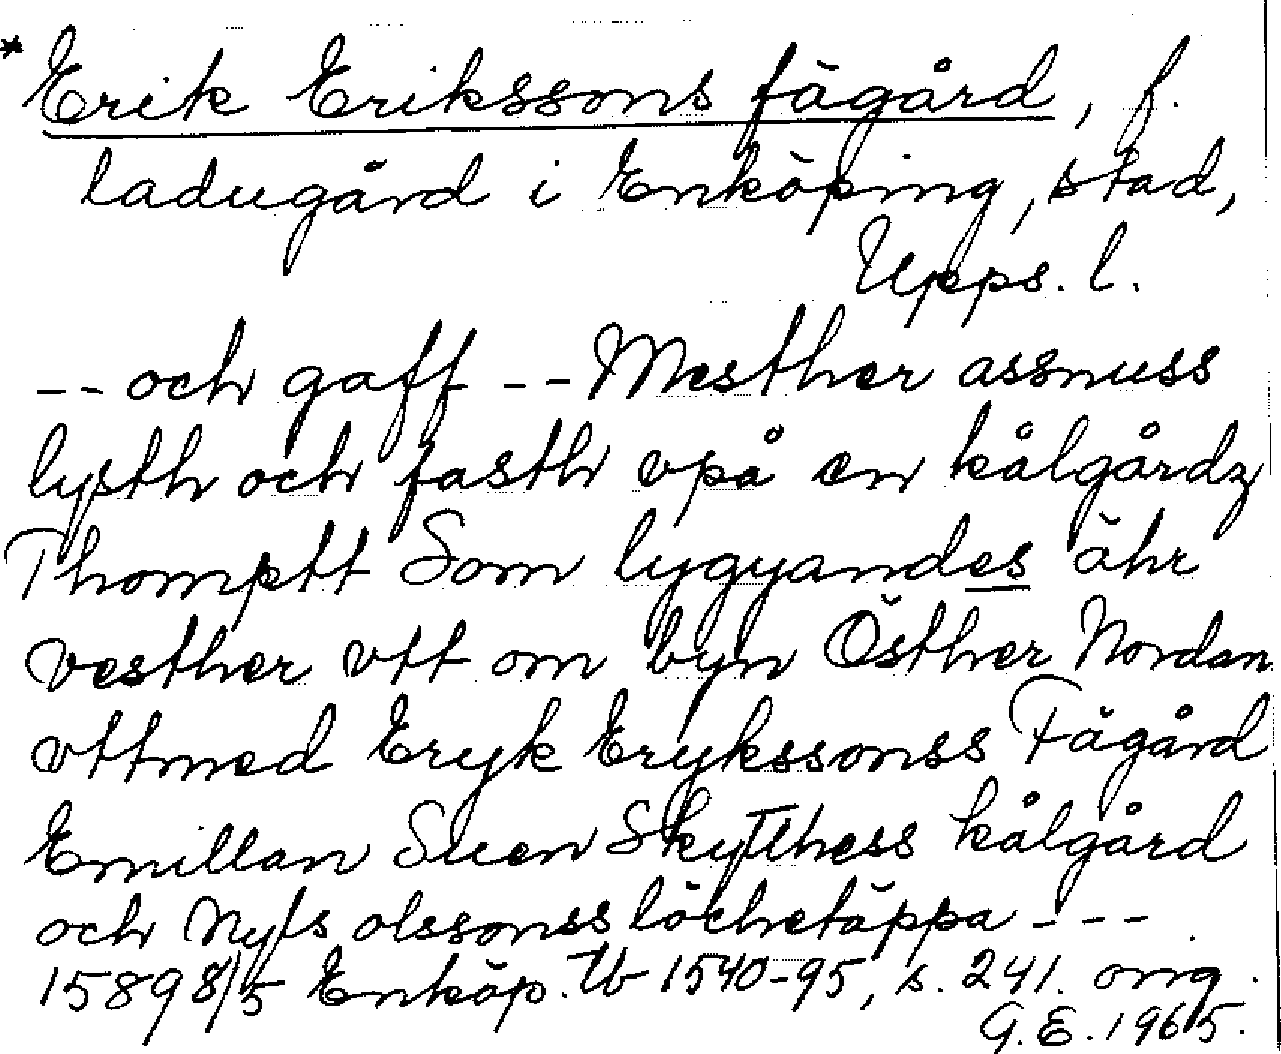 * Erik Erikssons fägård, f.
ladugård i Enköping, stad,
Upps. l.
-- och gaff -- Mesther assnuss
lysth och fasth vpå en kålgårdz
Thomptt Som lygyandes ähr
vesther vtt om byn Östher Nordan
vttmed Eryk Erykssonss Fägård
Emillan Suen Skytthess kålgård
och Nyls olssonss löchetäppa ---
1589 8/5 Enköp. Tb 1540-95, s. 241. orig.
G. E. 1965.